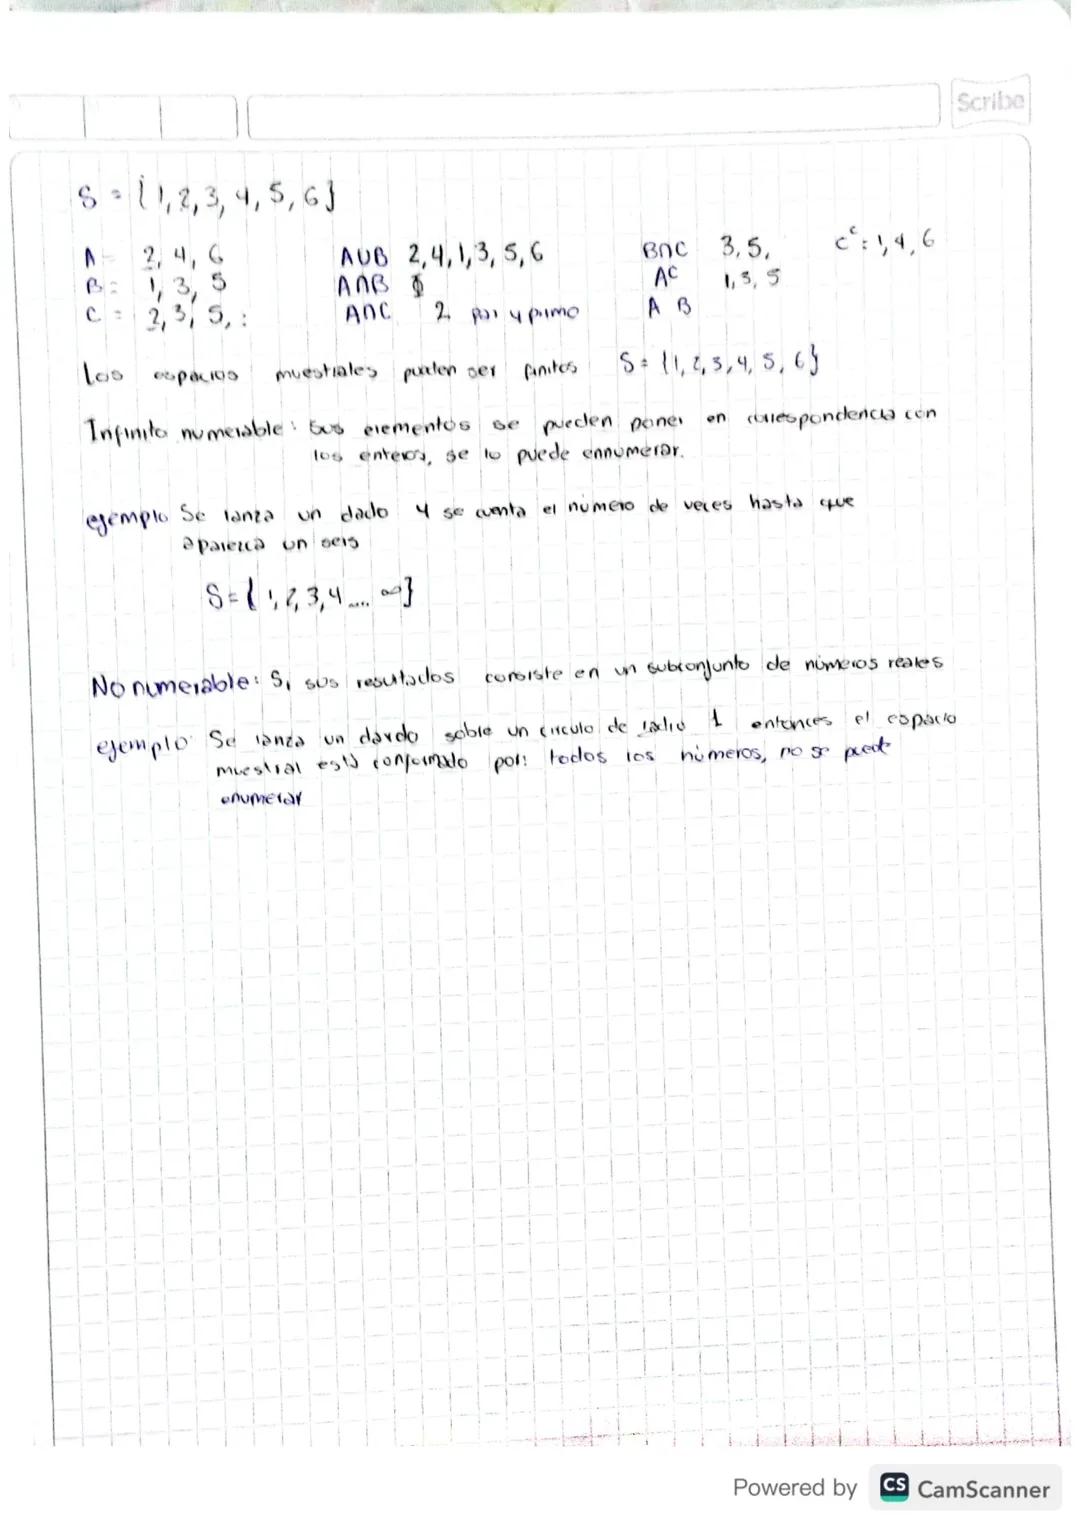 Scribe
S = {1,2,3,4,5,6}
A = 2, 4, 6 AUB 2,4,1,3,5,6 B∩C 3,5, Cᶜ: 1,4,6
B = 1, 3, 5 A∩B ∅ Aᶜ 1,3,5
C = 2,3,5,: A∩C 2 par y primo A B
Los espacios muestrales pueden ser finitos S = {1,2,3,4,5,6}
Infinito numerable: Sus elementos se pueden poner en correspondencia con
los enteros, se lo puede ennumerar.
ejemplo Se lanza un dado y se cuenta el número de veces hasta que
aparezca un seis
S={1,2,3,4.... ∞}
No numerable: Si sus resultados consiste en un subconjunto de números reales
ejemplo Se lanza un dardo sobre un circulo de radio 1 entonces el espacio
muestral está conformado por: todos los números, no se puede
enumerar
Powered by CS CamScanner